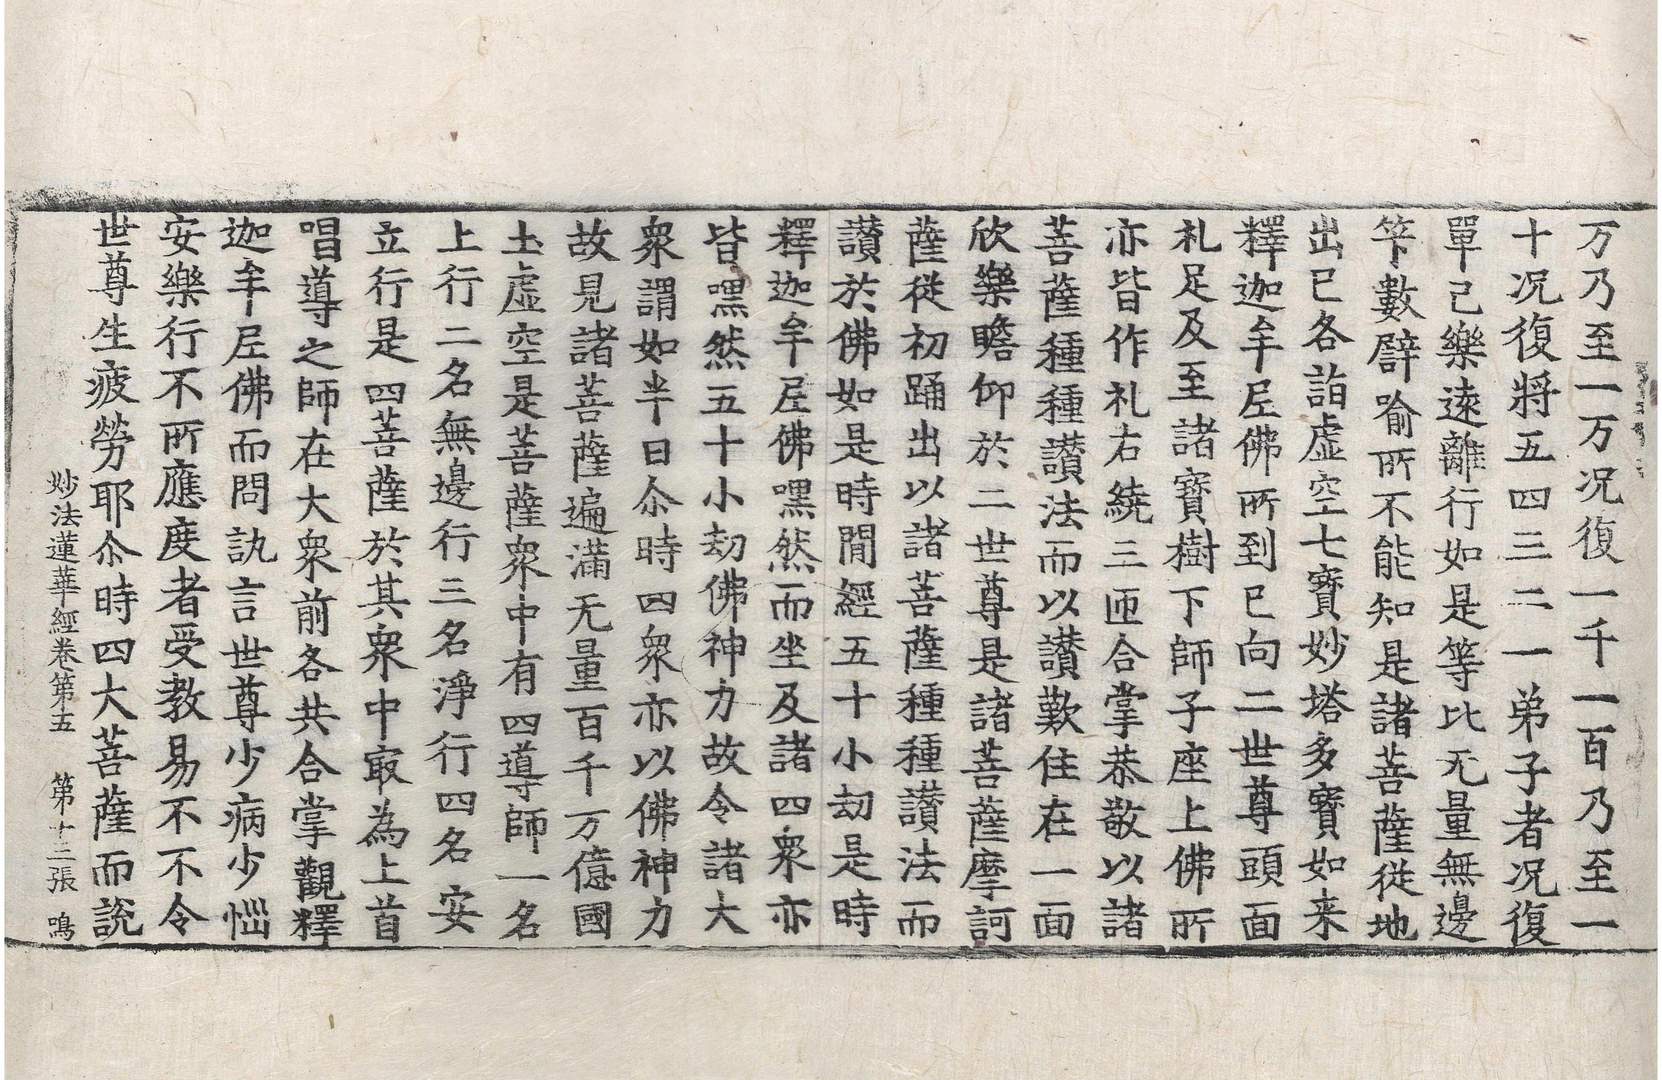 万乃至一万况復一千一百乃至一
十况復將五四三二一弟子者况復
單己樂遠離行如是等比无量無邊
筭數譬喻所不能知是諸菩薩從地
出已各詣虛空七寶妙塔多寶如来
釋迦牟𡰱佛所到已向二世尊頭面
礼足及至諸寶樹下師子座上佛所
亦皆作礼右繞三匝合掌恭敬以諸
菩薩種種讃法而以讃歎住在一面
欣樂瞻仰於二世尊是諸菩薩摩訶
薩從初踊出以諸菩薩種種讃法而
讃於佛如是時閒經五十小劫是時
釋迦牟𡰱佛嘿然而坐及諸四衆亦
皆嘿然五十小劫佛神力故令諸大
衆謂如半日尒時四衆亦以佛神力
故見諸菩薩遍滿无量百千万億國
土虛空是菩薩衆中有四導師一名
上行二名無邊行三名淨行四名安
立行是四菩薩於其衆中㝡為上首
唱導之師在大衆前各共合掌觀釋
迦牟𡰱佛而問訊言世尊少病少惱
安樂行不所應度者受教易不不令
世尊生疲勞耶尒時四大菩薩而說
妙法蓮華經卷第五 第十三張 鳴